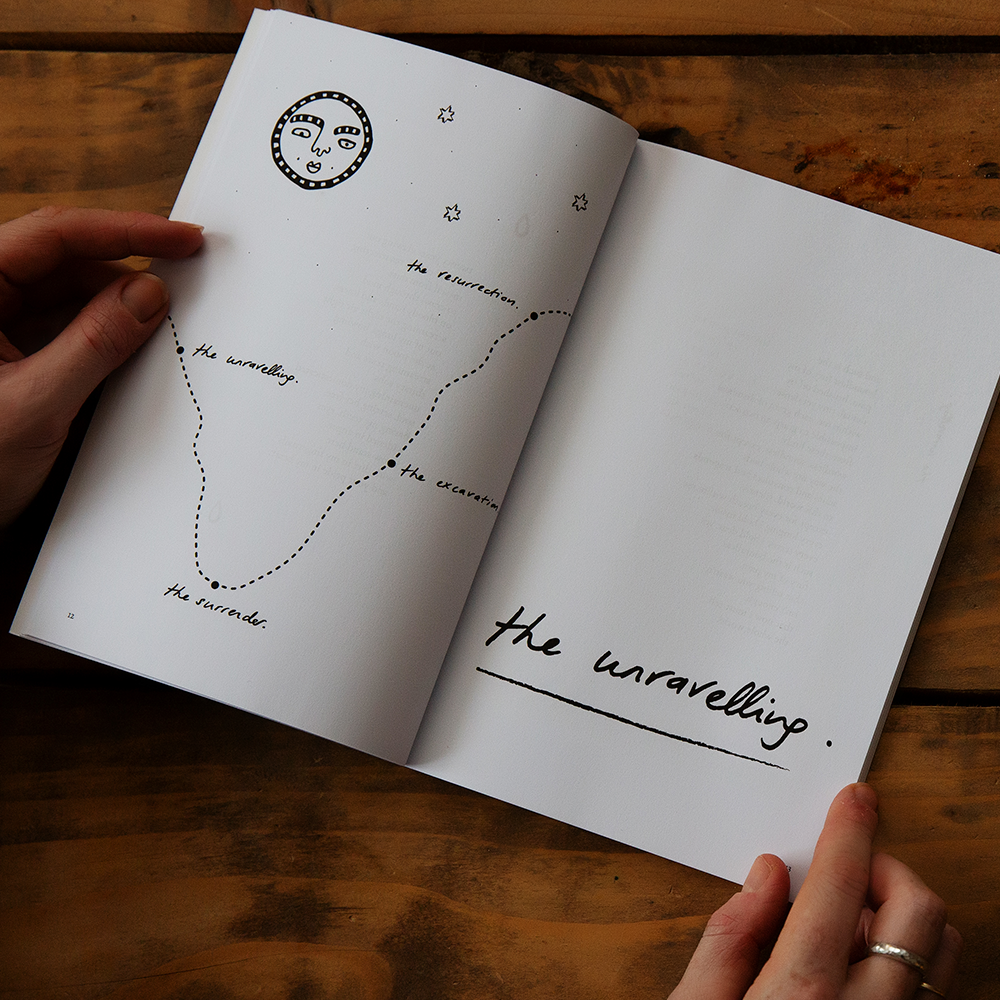 the resurrection.
the unravelling.
the excavation
the surrender.
12
the unravelling.